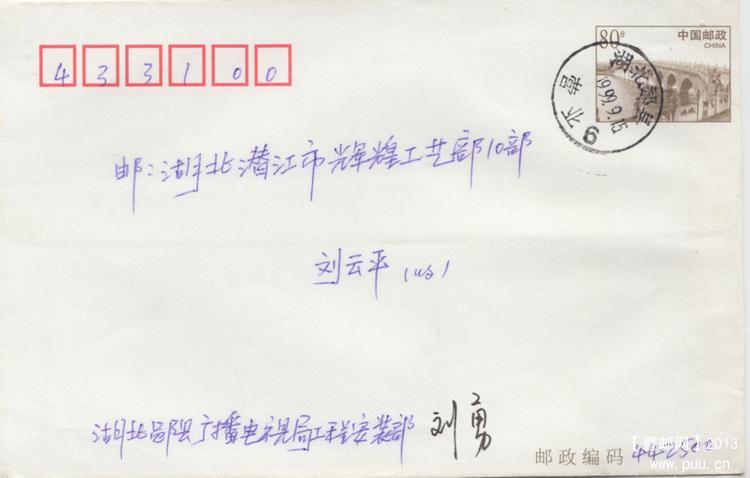 433100
80分 中国邮政
CHINA
湖北郧县
1999.9.15
邮:湖北潜江市辉煌工艺部10部
刘云平(收)
湖北郧县广播电视局工程安装部 刘勇
邮政编码 442500
2013
www.puu.cn